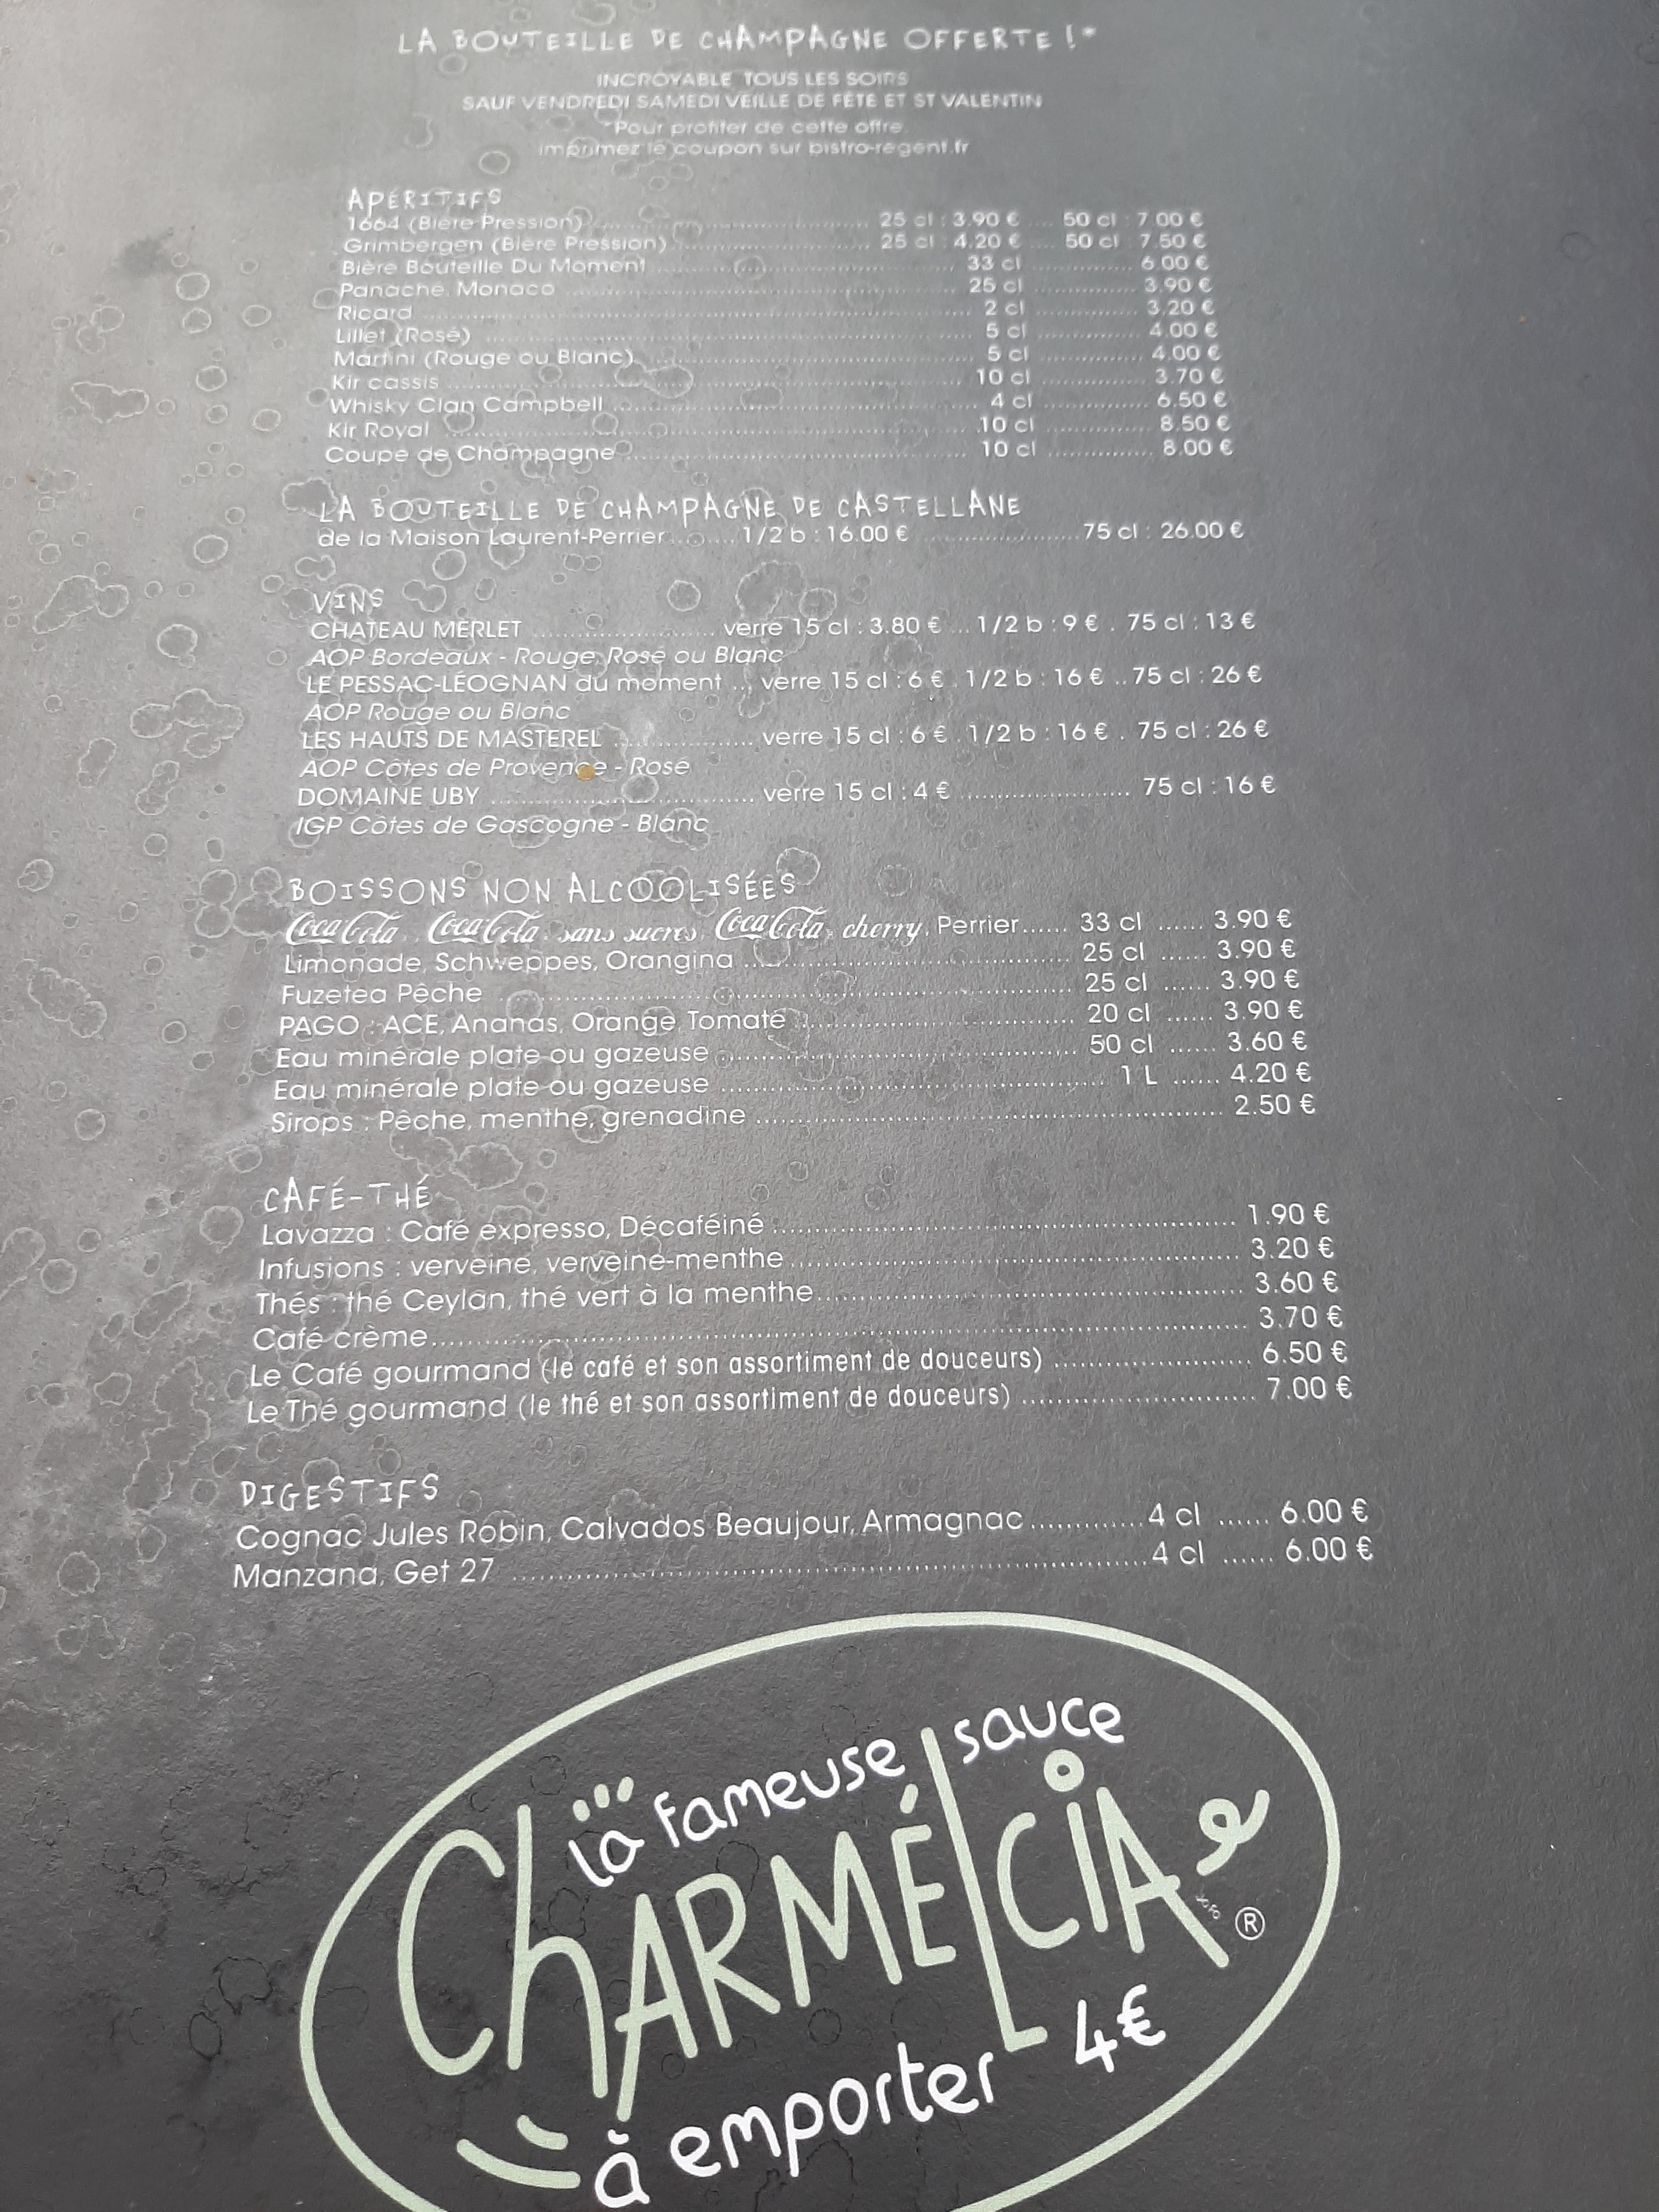 LA BOUTEILLE DE CHAMPAGNE OFFERTE !*
INCROYABLE TOUS LES SOIRS
SAUF VENDREDI SAMEDI VEILLE DE FÊTE ET ST VALENTIN
*Pour profiter de cette offre,
imprimez le coupon sur bistro-regent.fr
APÉRITIFS
1664 (Bière Pression) 25 cl : 3.90 € .... 50 cl : 7.00 €
Grimbergen (Bière Pression) 25 cl : 4.20 € .... 50 cl : 7.50 €
Bière Bouteille Du Moment 33 cl 6.00 €
Panaché, Monaco 25 cl 3.90 €
Ricard 2 cl 3.20 €
Lillet (Rosé) 5 cl 4.00 €
Martini (Rouge ou Blanc) 5 cl 4.00 €
Kir cassis 10 cl 3.70 €
Whisky Clan Campbell 4 cl 6.50 €
Kir Royal 10 cl 8.50 €
Coupe de Champagne 10 cl 8.00 €
LA BOUTEILLE DE CHAMPAGNE DE CASTELLANE
de la Maison Laurent-Perrier 1/2 b : 16.00 € 75 cl : 26.00 €
VINS
CHATEAU MERLET verre 15 cl : 3.80 € ... 1/2 b : 9 € . 75 cl : 13 €
AOP Bordeaux - Rouge, Rosé ou Blanc
LE PESSAC-LÉOGNAN du moment ... verre 15 cl : 6 € . 1/2 b : 16 € .. 75 cl : 26 €
AOP Rouge ou Blanc
LES HAUTS DE MASTEREL verre 15 cl : 6 € . 1/2 b : 16 € . 75 cl : 26 €
AOP Côtes de Provence - Rosé
DOMAINE UBY verre 15 cl : 4 € 75 cl : 16 €
IGP Côtes de Gascogne - Blanc
BOISSONS NON ALCOOLISÉES
Coca-Cola, Coca-Cola sans sucres, Coca-Cola cherry, Perrier...... 33 cl ...... 3.90 €
Limonade, Schweppes, Orangina 25 cl ...... 3.90 €
Fuzetea Pêche 25 cl ...... 3.90 €
PAGO : ACE, Ananas, Orange, Tomate 20 cl ...... 3.90 €
Eau minérale plate ou gazeuse 50 cl ...... 3.60 €
Eau minérale plate ou gazeuse 1 L ...... 4.20 €
Sirops : Pêche, menthe, grenadine 2.50 €
CAFÉ-THÉ
Lavazza : Café expresso, Décaféiné 1.90 €
Infusions : verveine, verveine-menthe 3.20 €
Thés : thé Ceylan, thé vert à la menthe 3.60 €
Café crème 3.70 €
Le Café gourmand (le café et son assortiment de douceurs) 6.50 €
Le Thé gourmand (le thé et son assortiment de douceurs) 7.00 €
DIGESTIFS
Cognac Jules Robin, Calvados Beaujour, Armagnac 4 cl ...... 6.00 €
Manzana, Get 27 4 cl ...... 6.00 €
la fameuse sauce
CHARMÉLCIA ®
à emporter 4€